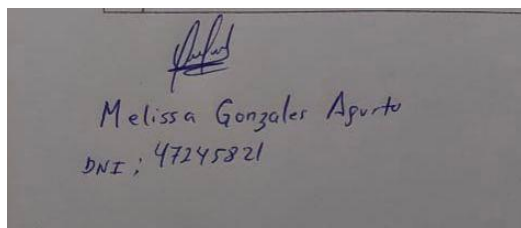 Melissa Gonzales Agurto
DNI: 47245821